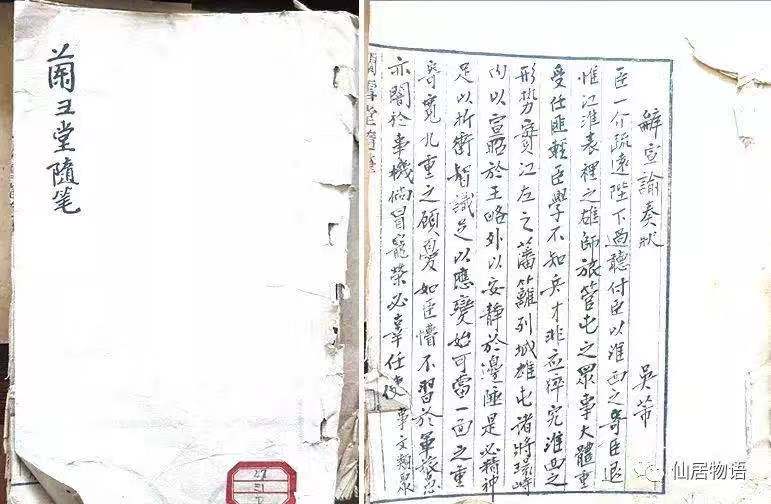 蘭彐堂隨笔
辭宣諭奏狀
吳芾
臣一介疏遠陛下過聽付臣以淮西之寄臣退
惟江淮表裡之雄師旅管屯之眾事大體重
受任匪輕臣學不知兵才非应猝究淮西之
形势實江左之藩籬列城雄屯諸將環峙
内以宣昭於王略外以安静於邊陲是必精神
足以折衝智識足以應變始可當一面之重
寄寬九重之顾憂如臣懵不習於軍旅思
亦闇於事機倘冒寵榮必辜任使
事文類聚
蘭雪堂隨筆
仙居物语